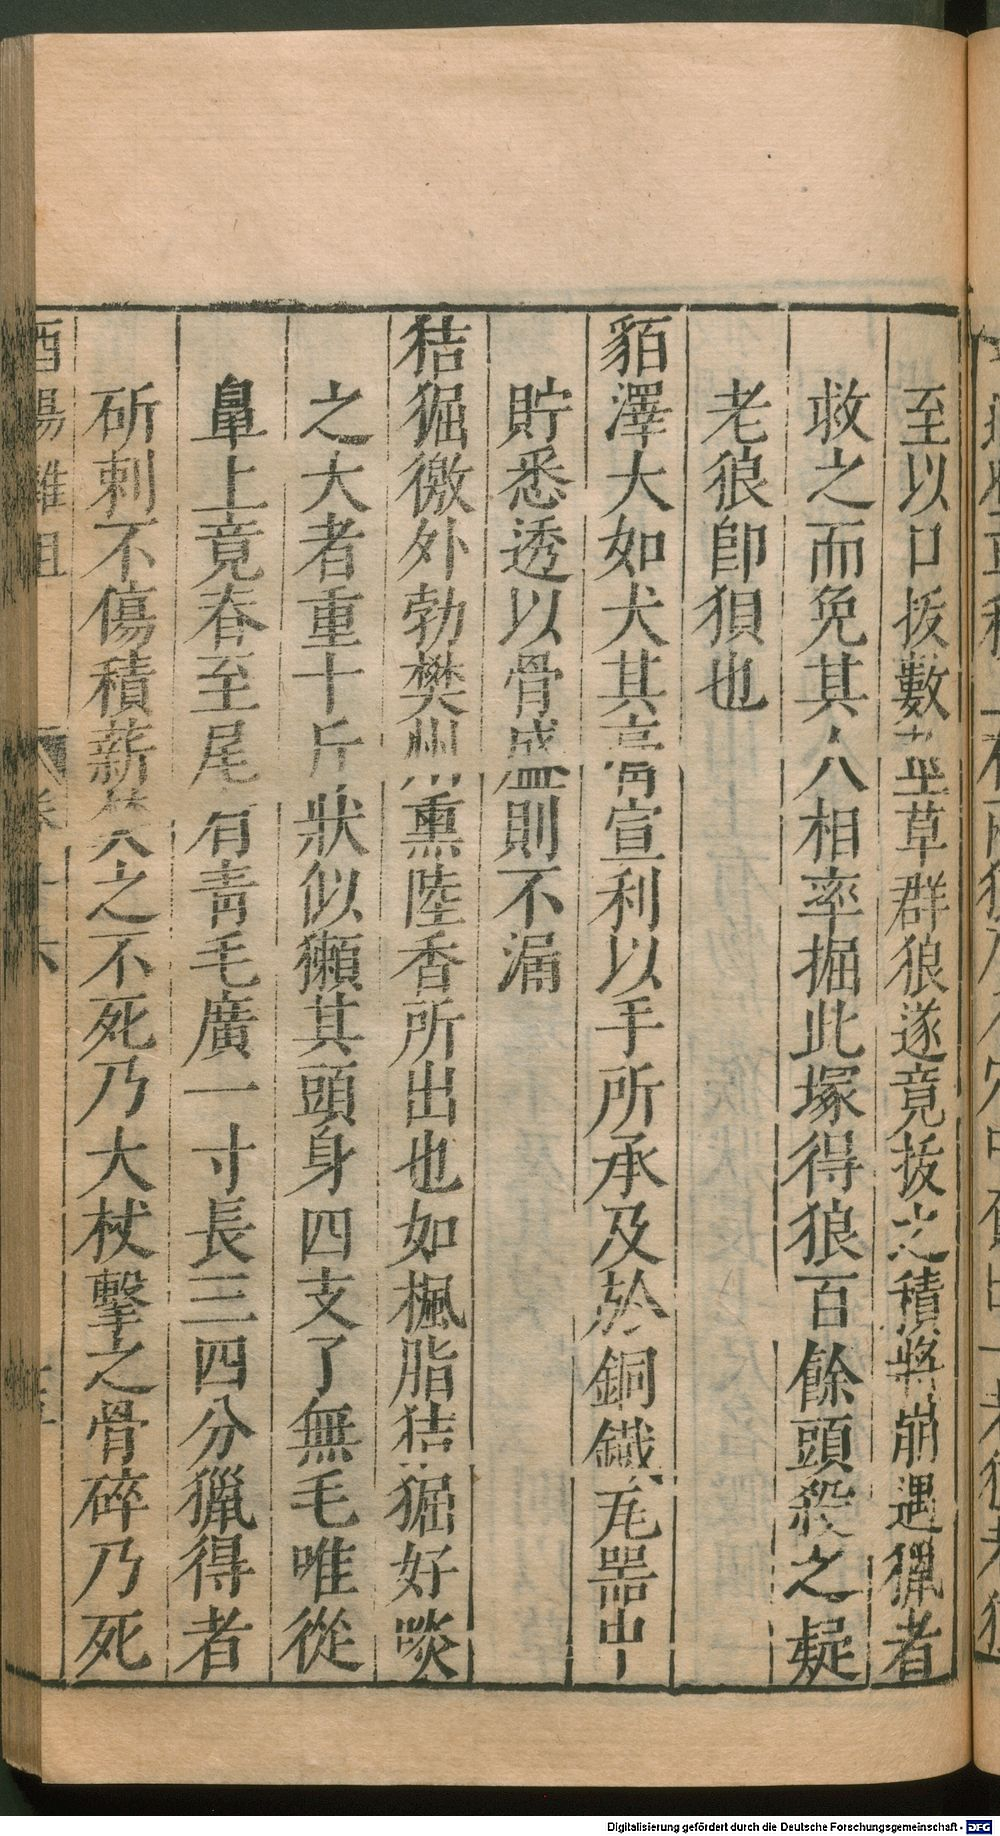 至以口拔數莖草群狼遂竟拔之積將崩遇獵者
救之而免其人相率掘此塚得狼百餘頭殺之疑
老狼卽狽也
貊澤大如犬其膏宣利以手所承及於銅鐵瓦器中
貯悉透以骨盛則不漏
狤𤟎徼外勃樊州熏陸香所出也如楓脂狤𤟎好啖
之大者重十斤狀似獺其頭身四支了無毛唯從
鼻上竟春至尾有青毛廣一寸長三四分獵得者
斫刺不傷積薪焚之不死乃大杖擊之骨碎乃死
酉陽雜俎 卷十六
Digitalisierung gefördert durch die Deutsche Forschungsgemeinschaft - DFG